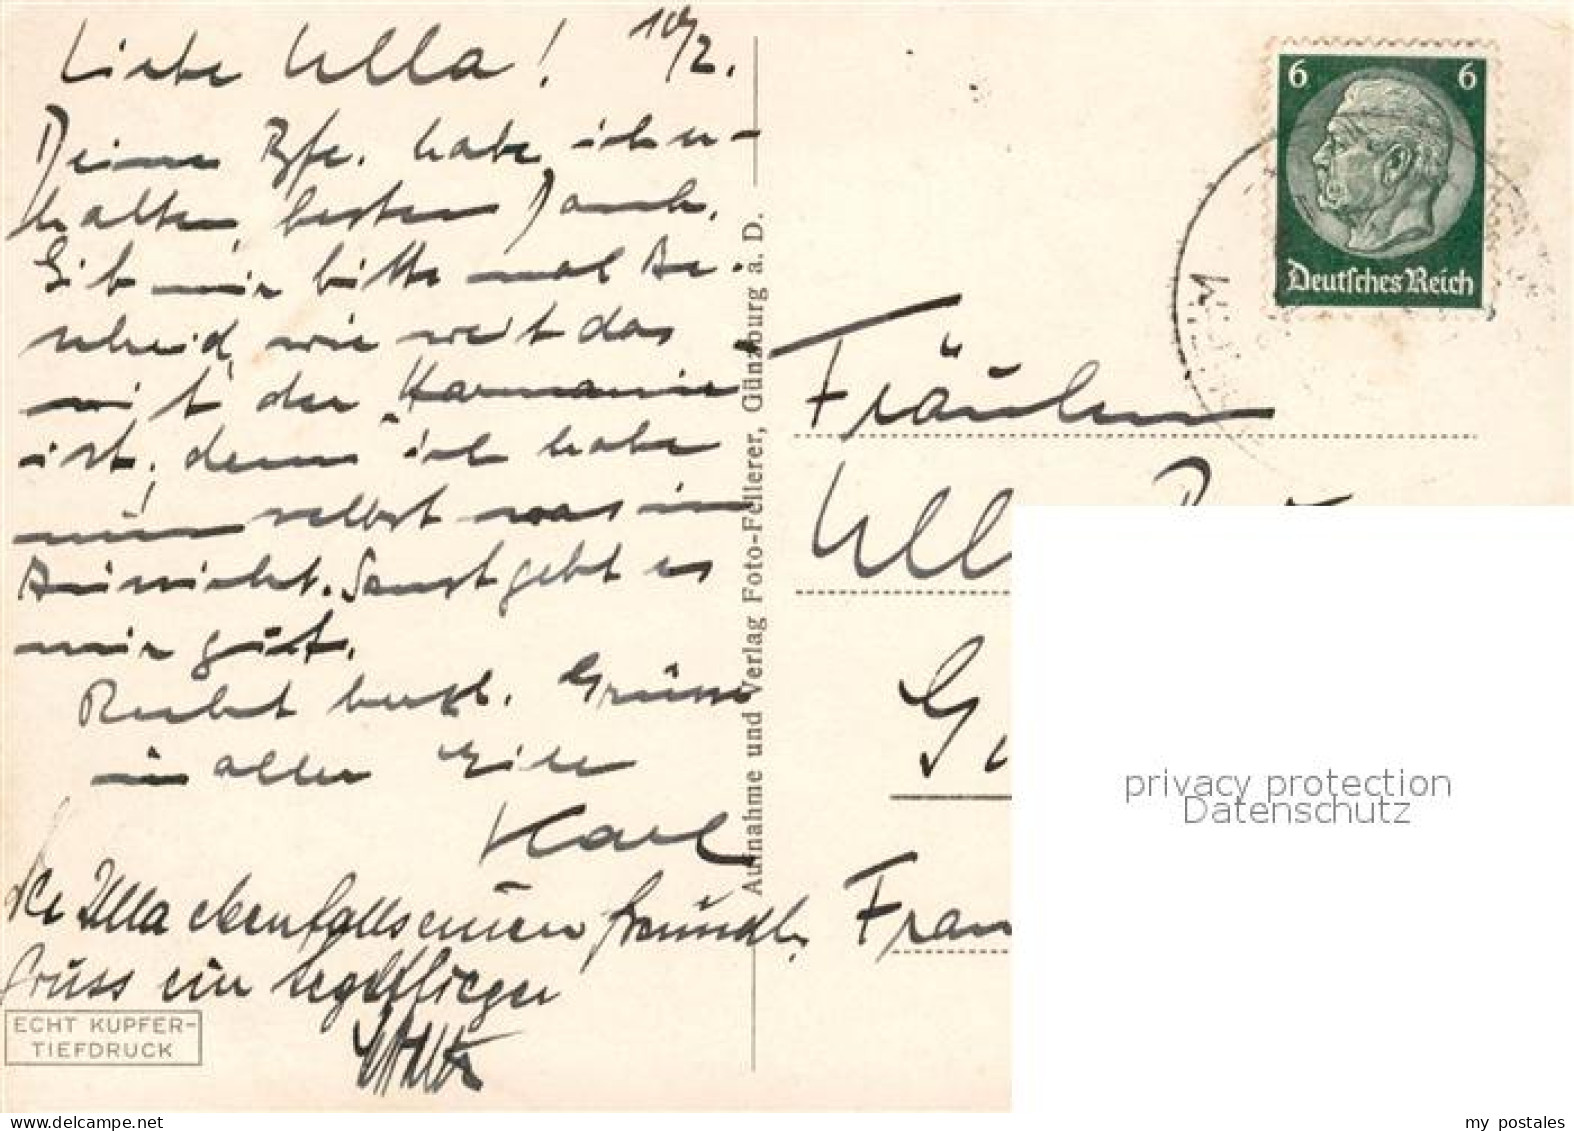 Liebe Ulla! 10/2.
Deine habe ich er-
halten, besten Dank.
Gib mir bitte mal Be-
scheid, wie weit das
mit der "Harmonie
ist, denn ich habe
nun selbst was in
Aussicht. Sonst geht es
mir gut.
Recht herzl. Grüsse
in aller Eile
Karl
Ulla ebenfalls einen freundl.
Gruss ein Segelflieger
ECHT KUPFER-
TIEFDRUCK
Aufnahme und Verlag Foto-Fellerer, Günzburg a. D.
6 6
Deutsches Reich
Fräulein
Ull
G
Fran
privacy protection
Datenschutz
my postales